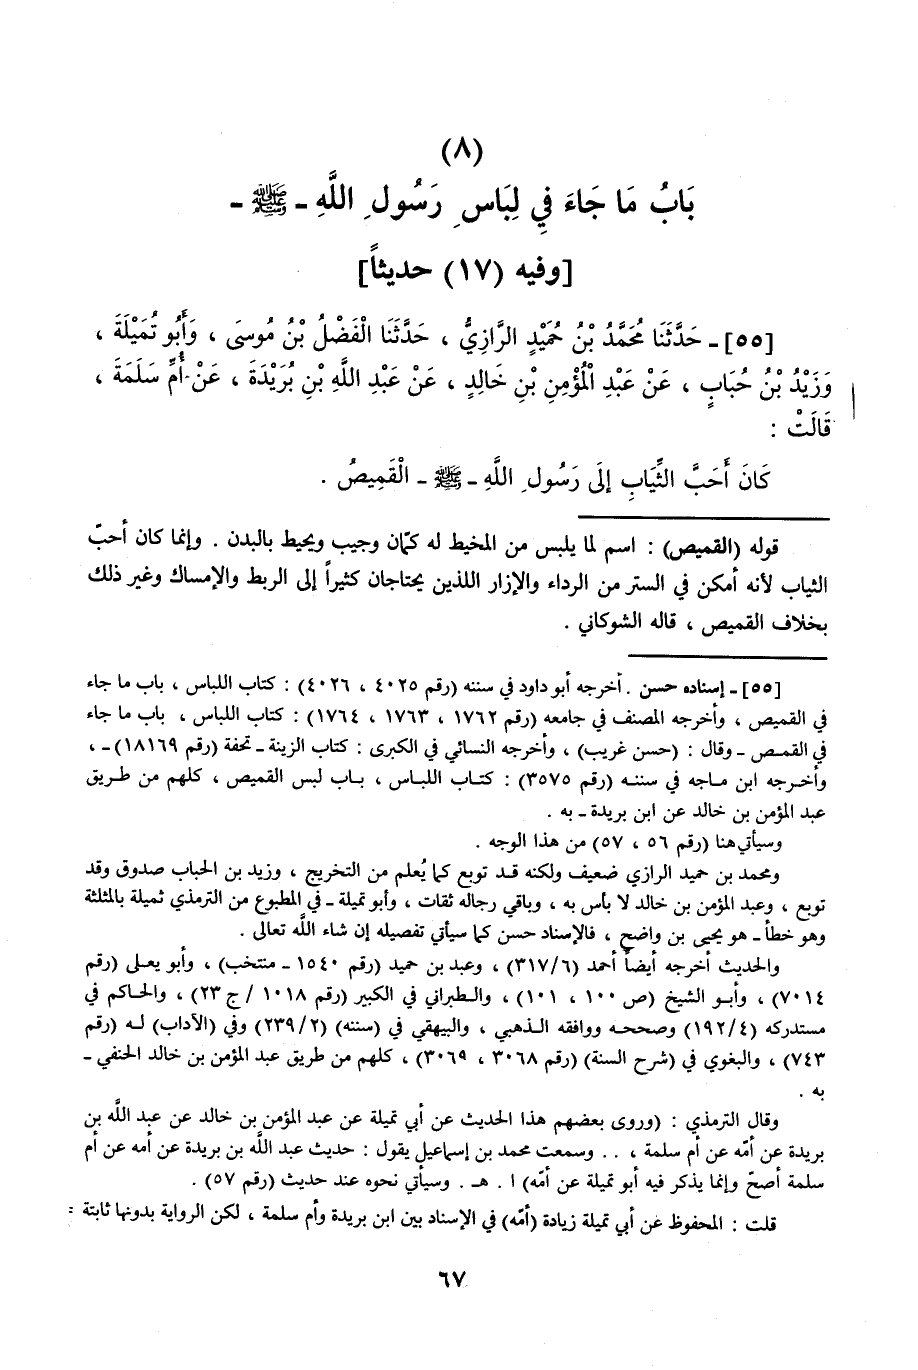 (٨)
بَابُ مَا جَاءَ فِي لِبَاسِ رَسُولِ اللَّهِ - ﷺ -
[وفيه (١٧) حديثاً]
[٥٥] - حَدَّثَنَا مُحَمَّدُ بْنُ حُمَيْدٍ الرَّازِيُّ ، حَدَّثَنَا الْفَضْلُ بْنُ مُوسَى ، وَأَبُو تُمَيْلَةَ ،
وَزَيْدُ بْنُ حُبَابٍ ، عَنْ عَبْدِ الْمُؤْمِنِ بْنِ خَالِدٍ ، عَنْ عَبْدِ اللَّهِ بْنِ بُرَيْدَةَ ، عَنْ أُمِّ سَلَمَةَ ،
قَالَتْ :
كَانَ أَحَبَّ الثِّيَابِ إِلَى رَسُولِ اللَّهِ - ﷺ - الْقَمِيصُ .
قوله (القميص) : اسم لما يلبس من المخيط له كمّان وجيب ويحيط بالبدن . وإنما كان أحبّ
الثياب لأنه أمكن في الستر من الرداء والإزار اللذين يحتاجان كثيراً إلى الربط والإمساك وغير ذلك
بخلاف القميص ، قاله الشوكاني .
[٥٥] - إسناده حسن . أخرجه أبو داود في سننه (رقم ٤٠٢٥ ، ٤٠٢٦) : كتاب اللباس ، باب ما جاء
في القميص ، وأخرجه المصنف في جامعه (رقم ١٧٦٢ ، ١٧٦٣ ، ١٧٦٤) : كتاب اللباس ، باب ما جاء
في القمص - وقال : (حسن غريب) ، وأخرجه النسائي في الكبرى : كتاب الزينة - تحفة (رقم ١٨١٦٩) - ،
وأخرجه ابن ماجه في سننه (رقم ٣٥٧٥) : كتاب اللباس ، باب لبس القميص ، كلهم من طريق
عبد المؤمن بن خالد عن ابن بريدة - به .
وسيأتي هنا (رقم ٥٦ ، ٥٧) من هذا الوجه .
ومحمد بن حميد الرازي ضعيف ولكنه قد توبع كما يُعلم من التخريج ، وزيد بن الحباب صدوق وقد
توبع ، وعبد المؤمن بن خالد لا بأس به ، وباقي رجاله ثقات ، وأبو تميلة - في المطبوع من الترمذي ثميلة بالمثلثة
وهو خطأ - هو يحيى بن واضح ، فالإسناد حسن كما سيأتي تفصيله إن شاء اللَّه تعالى .
والحديث أخرجه أيضاً أحمد (٣١٧/٦) ، وعبد بن حميد (رقم ١٥٤٠ - منتخب) ، وأبو يعلى (رقم
٧٠١٤) ، وأبو الشيخ (ص ١٠٠ ، ١٠١) ، والطبراني في الكبير (رقم ١٠١٨ / ج ٢٣) ، والحاكم في
مستدركه (١٩٢/٤) وصححه ووافقه الذهبي ، والبيهقي في (سننه) (٢٣٩/٢) وفي (الآداب) له (رقم
٧٤٣) ، والبغوي في (شرح السنة) (رقم ٣٠٦٨ ، ٣٠٦٩) ، كلهم من طريق عبد المؤمن بن خالد الحنفي -
به .
وقال الترمذي : (وروى بعضهم هذا الحديث عن أبي تميلة عن عبد المؤمن بن خالد عن عبد اللَّه بن
بريدة عن أمّه عن أم سلمة ، . . وسمعت محمد بن إسماعيل يقول : حديث عبد اللَّه بن بريدة عن أمه عن أم
سلمة أصحّ وإنما يذكر فيه أبو تميلة عن أمّه) ا . هـ . وسيأتي نحوه عند حديث (رقم ٥٧) .
قلت : المحفوظ عن أبي تميلة زيادة (أمّه) في الإسناد بين ابن بريدة وأم سلمة ، لكن الرواية بدونها ثابتة =
٦٧